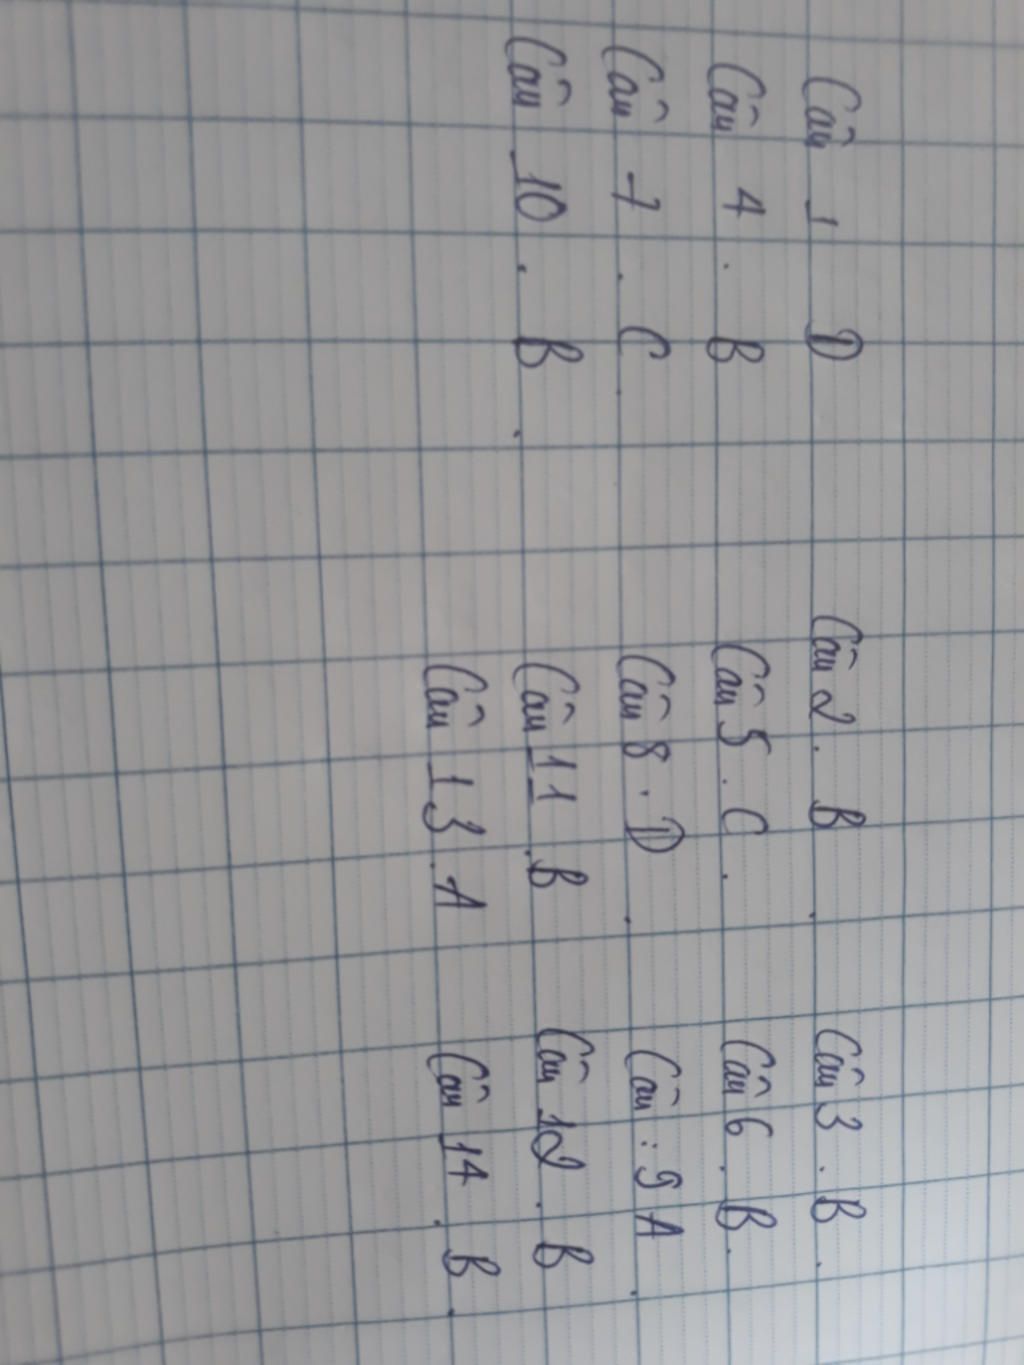 Câu 1 D Câu 2. B. Câu 3. B.
Câu 4. B Câu 5. C. Câu 6. B.
Câu 7. C. Câu 8. D. Câu: 9 A.
Câu 10. B. Câu 11. B Câu 12. B
Câu 13. A Câu 14. B.